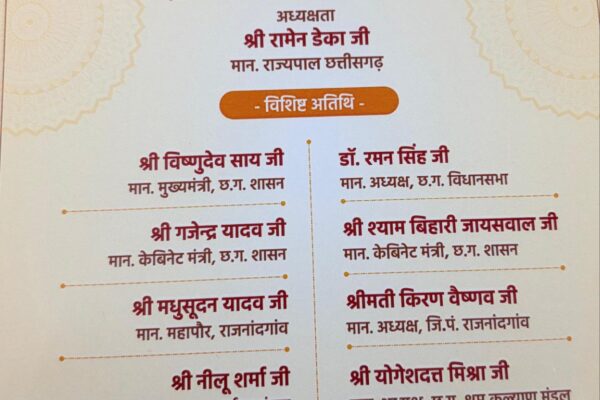 अध्यक्षता
श्री रामेन डेका जी
मान. राज्यपाल छत्तीसगढ़
- विशिष्ट अतिथि -
श्री विष्णुदेव साय जी
मान. मुख्यमंत्री, छ.ग. शासन
डॉ. रमन सिंह जी
मान. अध्यक्ष, छ.ग. विधानसभा
श्री गजेन्द्र यादव जी
मान. केबिनेट मंत्री, छ.ग. शासन
श्री श्याम बिहारी जायसवाल जी
मान. केबिनेट मंत्री, छ.ग. शासन
श्री मधुसूदन यादव जी
मान. महापौर, राजनांदगांव
श्रीमती किरण वैष्णव जी
मान. अध्यक्ष, जि.पं. राजनांदगांव
श्री नीलू शर्मा जी
श्री योगेशदत्त मिश्रा जी